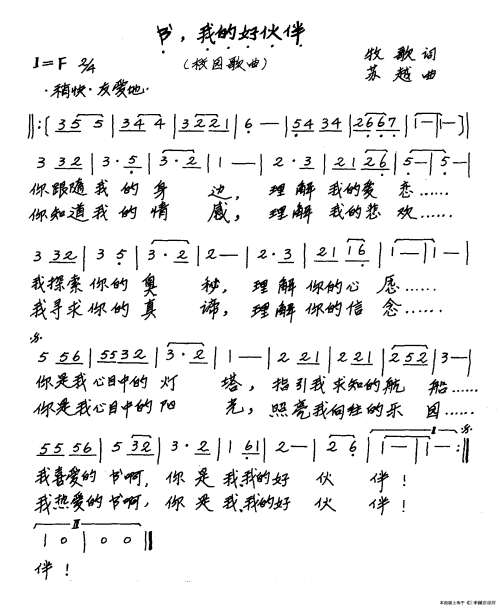 书，我的好伙伴
(校园歌曲)
1=F 2/4
牧歌词
苏越曲
·稍快·友爱地·
‖:(3 5 5 | 3 4 4 | 3 2 2 1 | 6 — | 5 4 3 4 | 2 6 6 7 | 1 — | 1 — )|
3 3 2 | 3 · 5 | 3 · 2 | 1 — | 2 · 3 | 2 1 2 6 | 5 — | 5 — |
你跟随我的身边，理解我的爱恋……
你知道我的情感，理解我的悲欢……
3 3 2 | 3 5 | 3 · 2 | 2 — | 2 · 3 | 2 1 1 6 | 1 — | 1 — |
我探索你的奥秘，理解你的心愿……
我寻求你的真谛，理解你的信念……
5 5 6 | 5 5 3 2 | 3 · 2 | 1 — | 2 2 1 | 2 2 1 | 2 5 2 | 3 — |
你是我心目中的灯塔，指引我求知的航船……
你是我心目中的阳光，照亮我向往的乐园……
5 5 5 6 | 5 3 2 | 3 · 2 | 1 6 1 | 2 — | 2 6 | 1 — | 1 — :‖
我喜爱的书啊，你是我，我的好伙伴！
我热爱的书啊，你是我，我的好伙伴！
Ⅱ
1 0 | 0 0 ‖
伴！